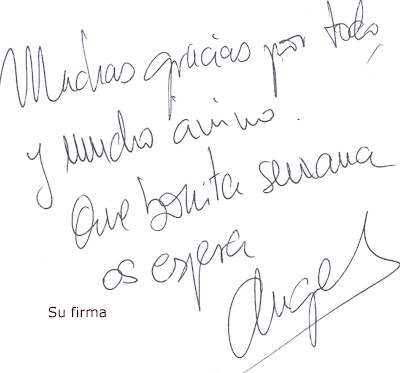 Muchas gracias por todo
y mucho ánimo.
Que bonita semana
os espera
Angel
Su firma